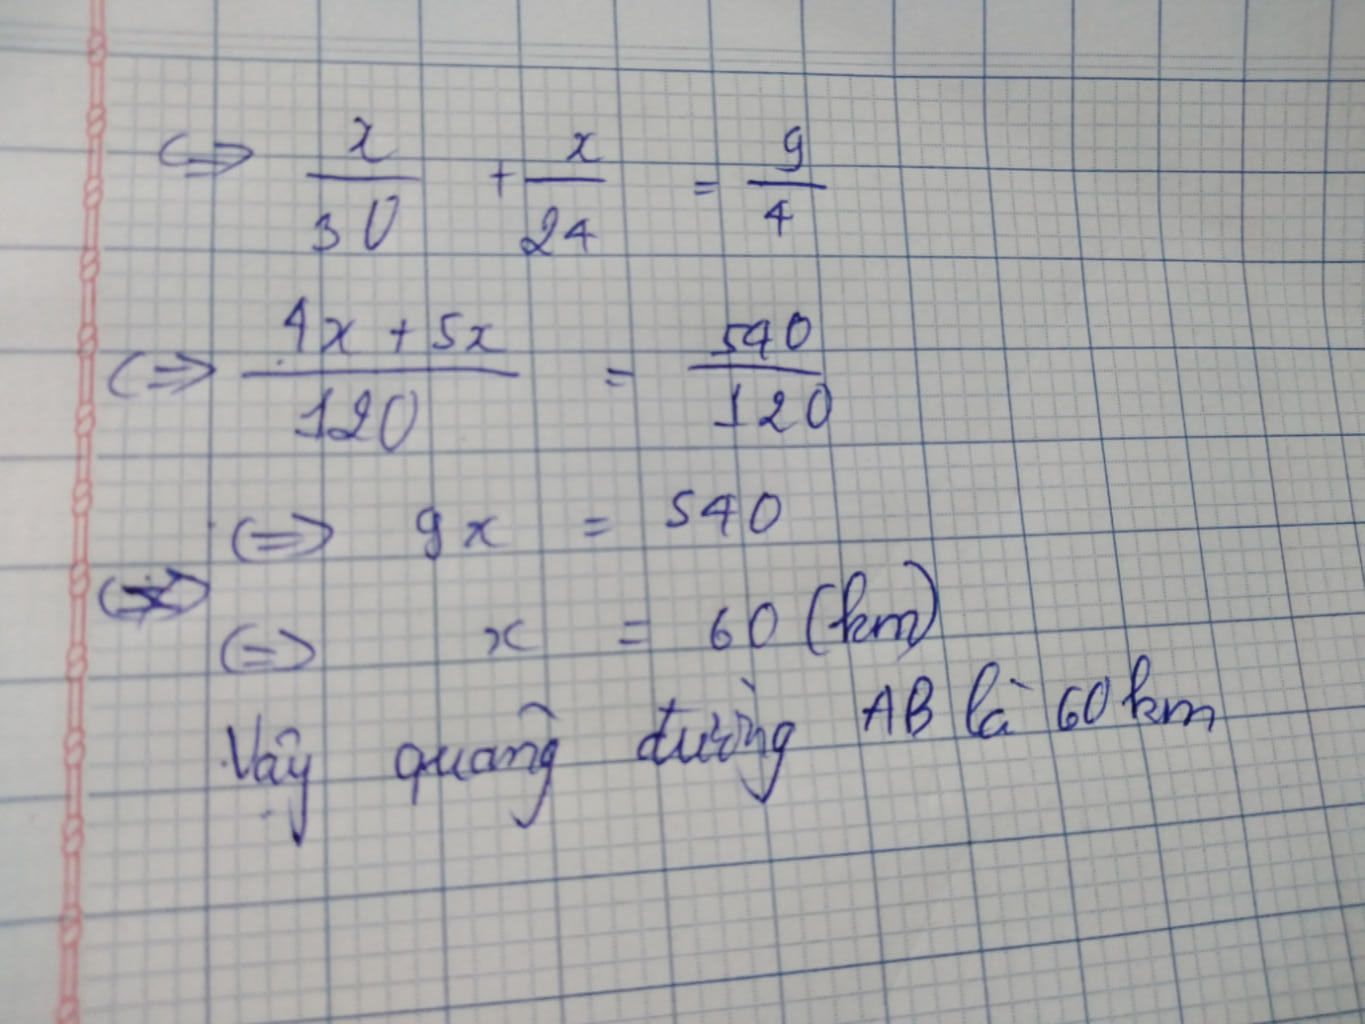 <=> x/30 + x/24 = 9/4
<=> (4x + 5x)/120 = 540/120
<=> 9x = 540
<=> x = 60 (km)
Vậy quãng đường AB là 60 km